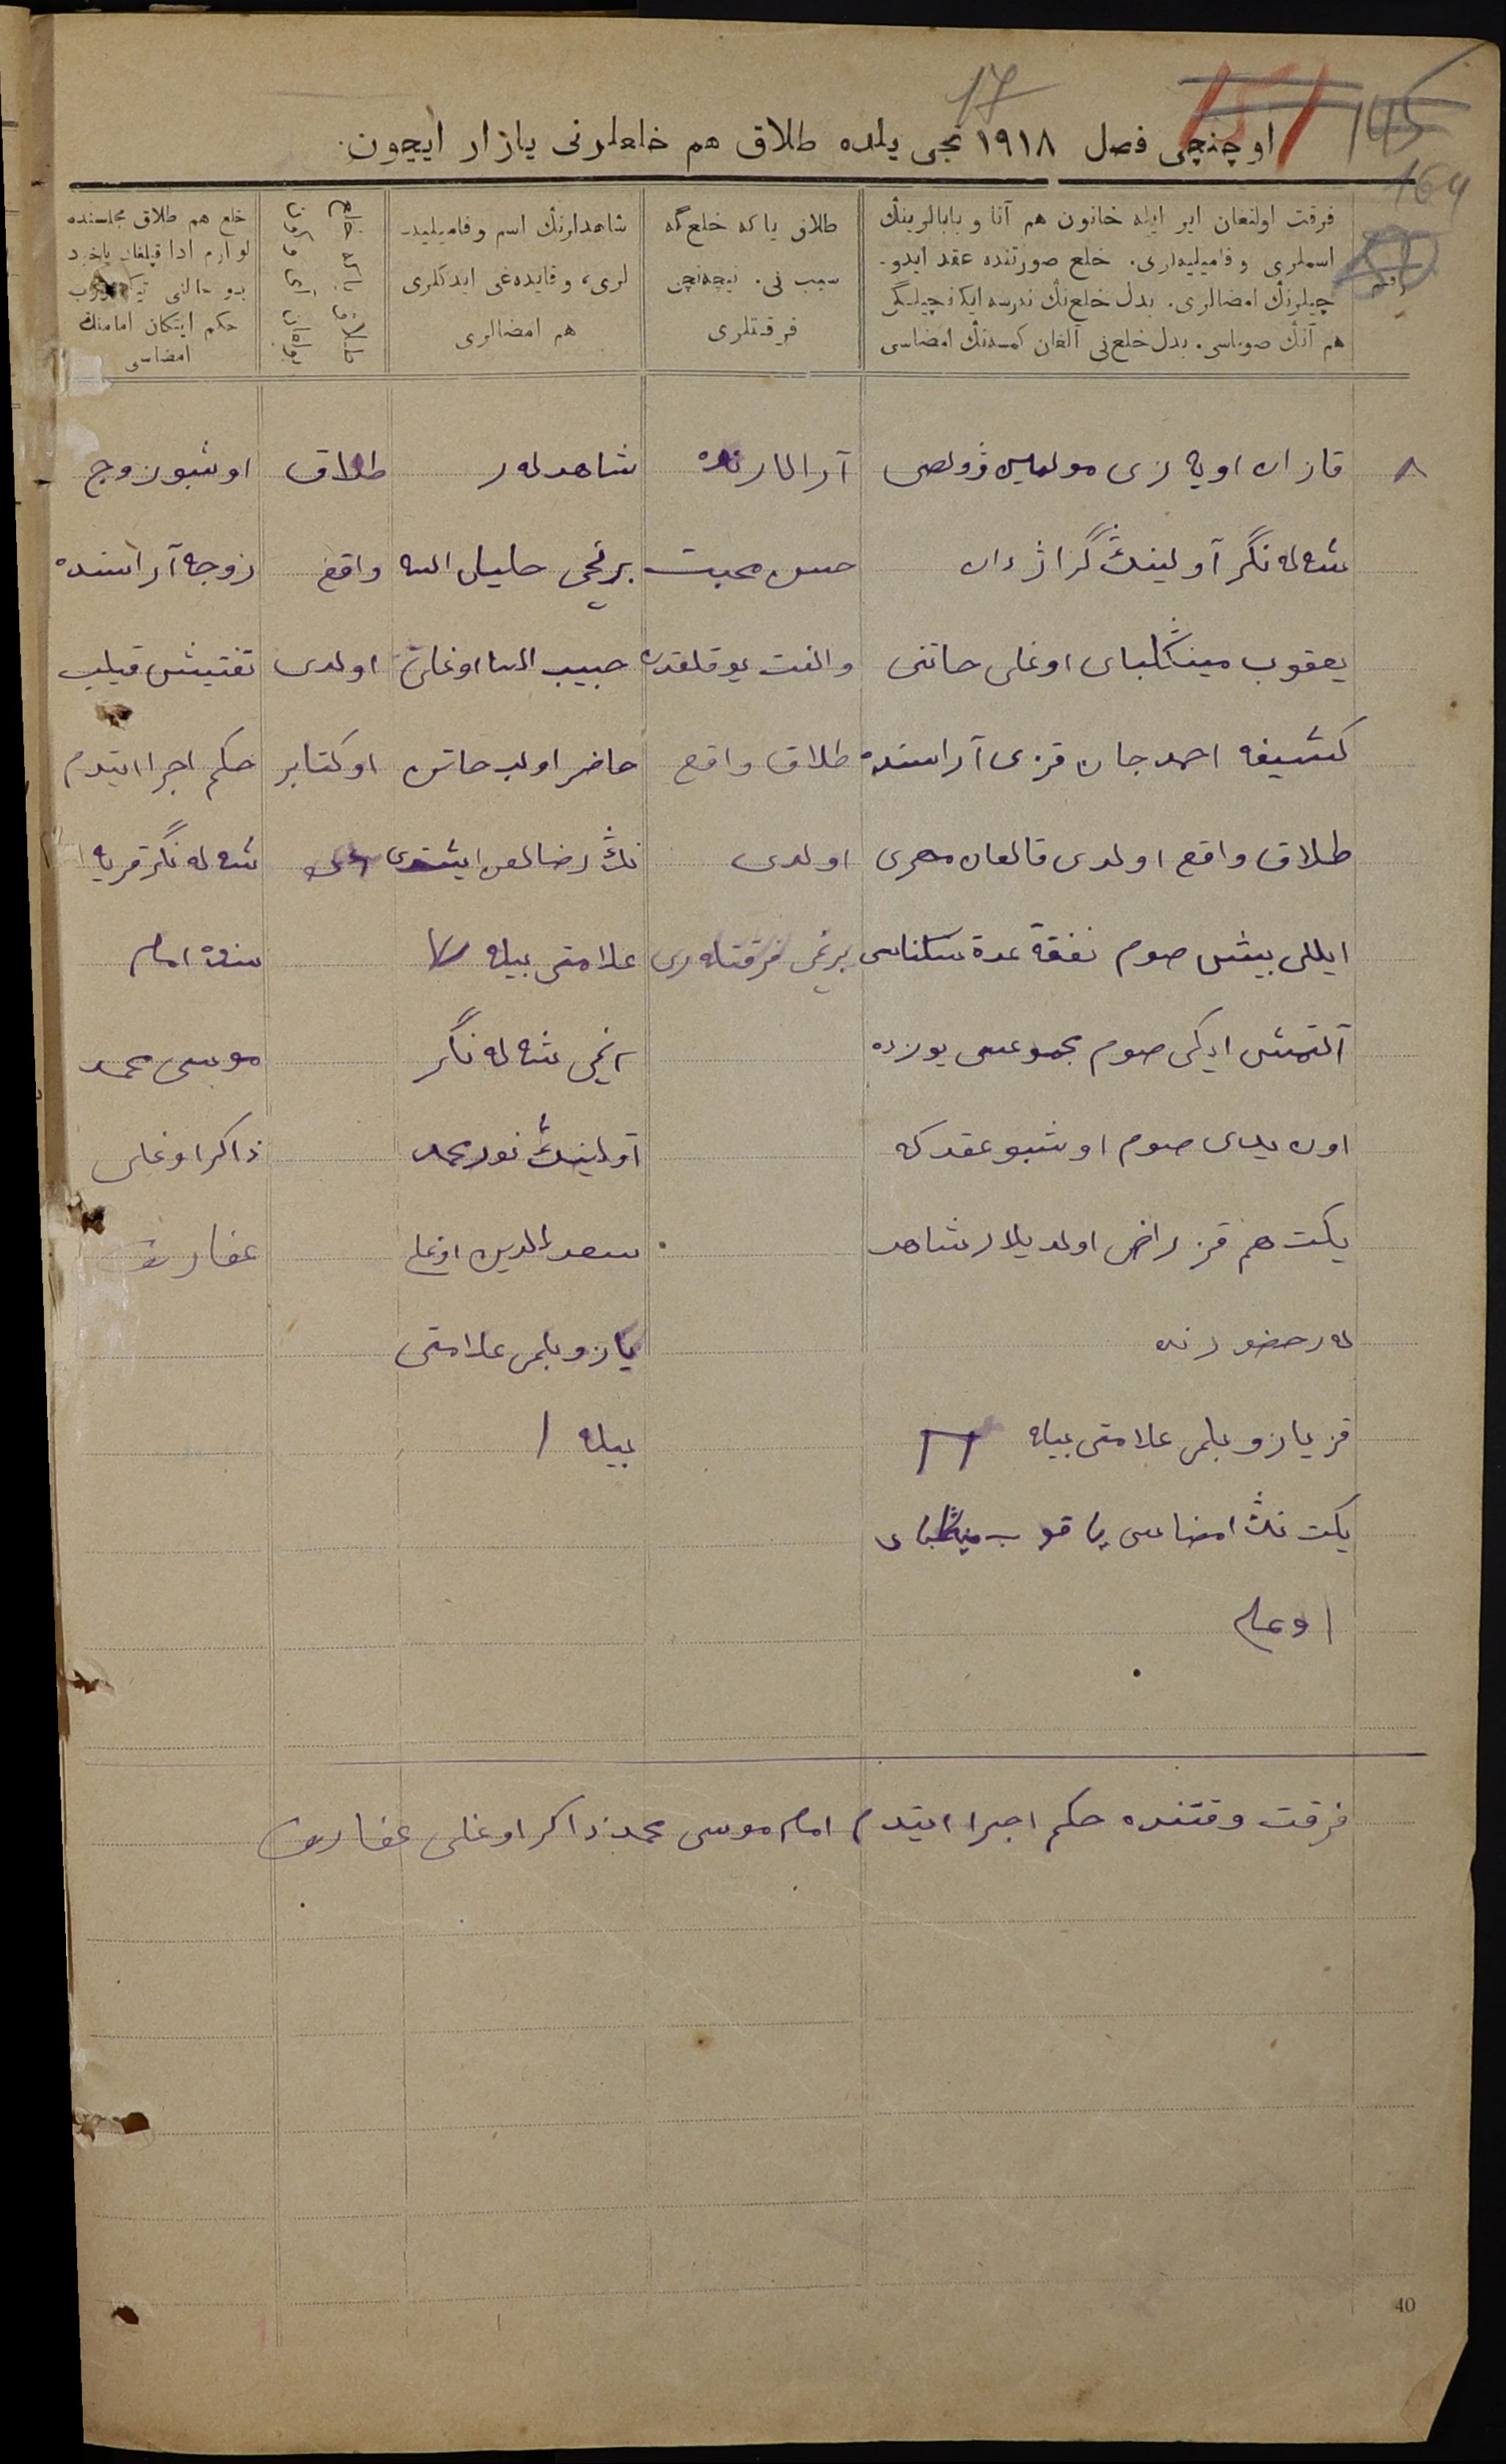 17
151 145
164
اوچنچی فصل ۱۹۱۸ نجی یلده طلاق هم خلعلرنی یازار ایچون.
رقم
فرقت اولنغان ایر ایله خاتون هم آنا و بابالرینڭ
اسملری و فامیلیه‌لری. خلع صورتنده عقد ایدو-
چیلرنڭ امضالری. بدل خلع نڭ نه‌رسه ایکانچیلیگی
هم آنڭ صوماسی. بدل خلع نی آلغان کمسه‌نڭ امضاسی
طلاق یا که خلع گه
سبب نی. نیچه‌نچی
فرقتلری
شاهدلرنڭ اسم و فامیلیه-
لری، و قایده‌غی ایدکلری
هم امضالری
خلع یا که طلاق
نڭ آی و کون
خلع هم طلاق مجلسنده
لوازم ادا قیلغان یاخود
بو حالنی
حکم ایتکان امامنڭ
امضاسی
۸
قازان اویه‌زی وولصی
شه‌له‌نگر آولینڭ گراژدان
یعقوب مینڭلبای اوغلی خاتنی
کشیفه احمدجان قزی آراسنده
طلاق واقع اولدی قالغان مهری
ایللی بیش صوم نفقهٔ عدة سکناسی
آلتمش ایکی صوم مجموعسی یوزده
اون یدی صوم اوشبو عقدکه
یکت هم قز راضی اولدیلار شاهد
له‌ر حضورنده
قز یازو بلمی علامتی بیله
یکت نڭ امضاسی یاقوب مینڭلبای
اوغلی
آرالارنده
حسن محبت
والفت یوقلقدن
طلاق واقع
اولدی
برنچی فرقتله‌ری
شاهدله‌ر
برنچی خلیل الله
حبیب الله اوغلی
حاضر اولب خاتون
نڭ رضالغن ایشتدی
علامتی بیله
۲نچی شه‌له‌نگر
آولینڭ نورمحمد
سعدالدین اوغلی
یازو بلمی علامتی
بیله /
طلاق
واقع
اولدی
اوکتابر
اوشبو زوج
زوجه آراسنده
تفتیش قیلیب
حکم اجرا ایتدم
شه‌له‌نگر قریه
سنڭ امام
موسی محمد
ذاکر اوغلی
غفاروف
فرقت وقتنده حکم اجرا ایتدم امام موسی محمدذاکر اوغلی غفاروف
40